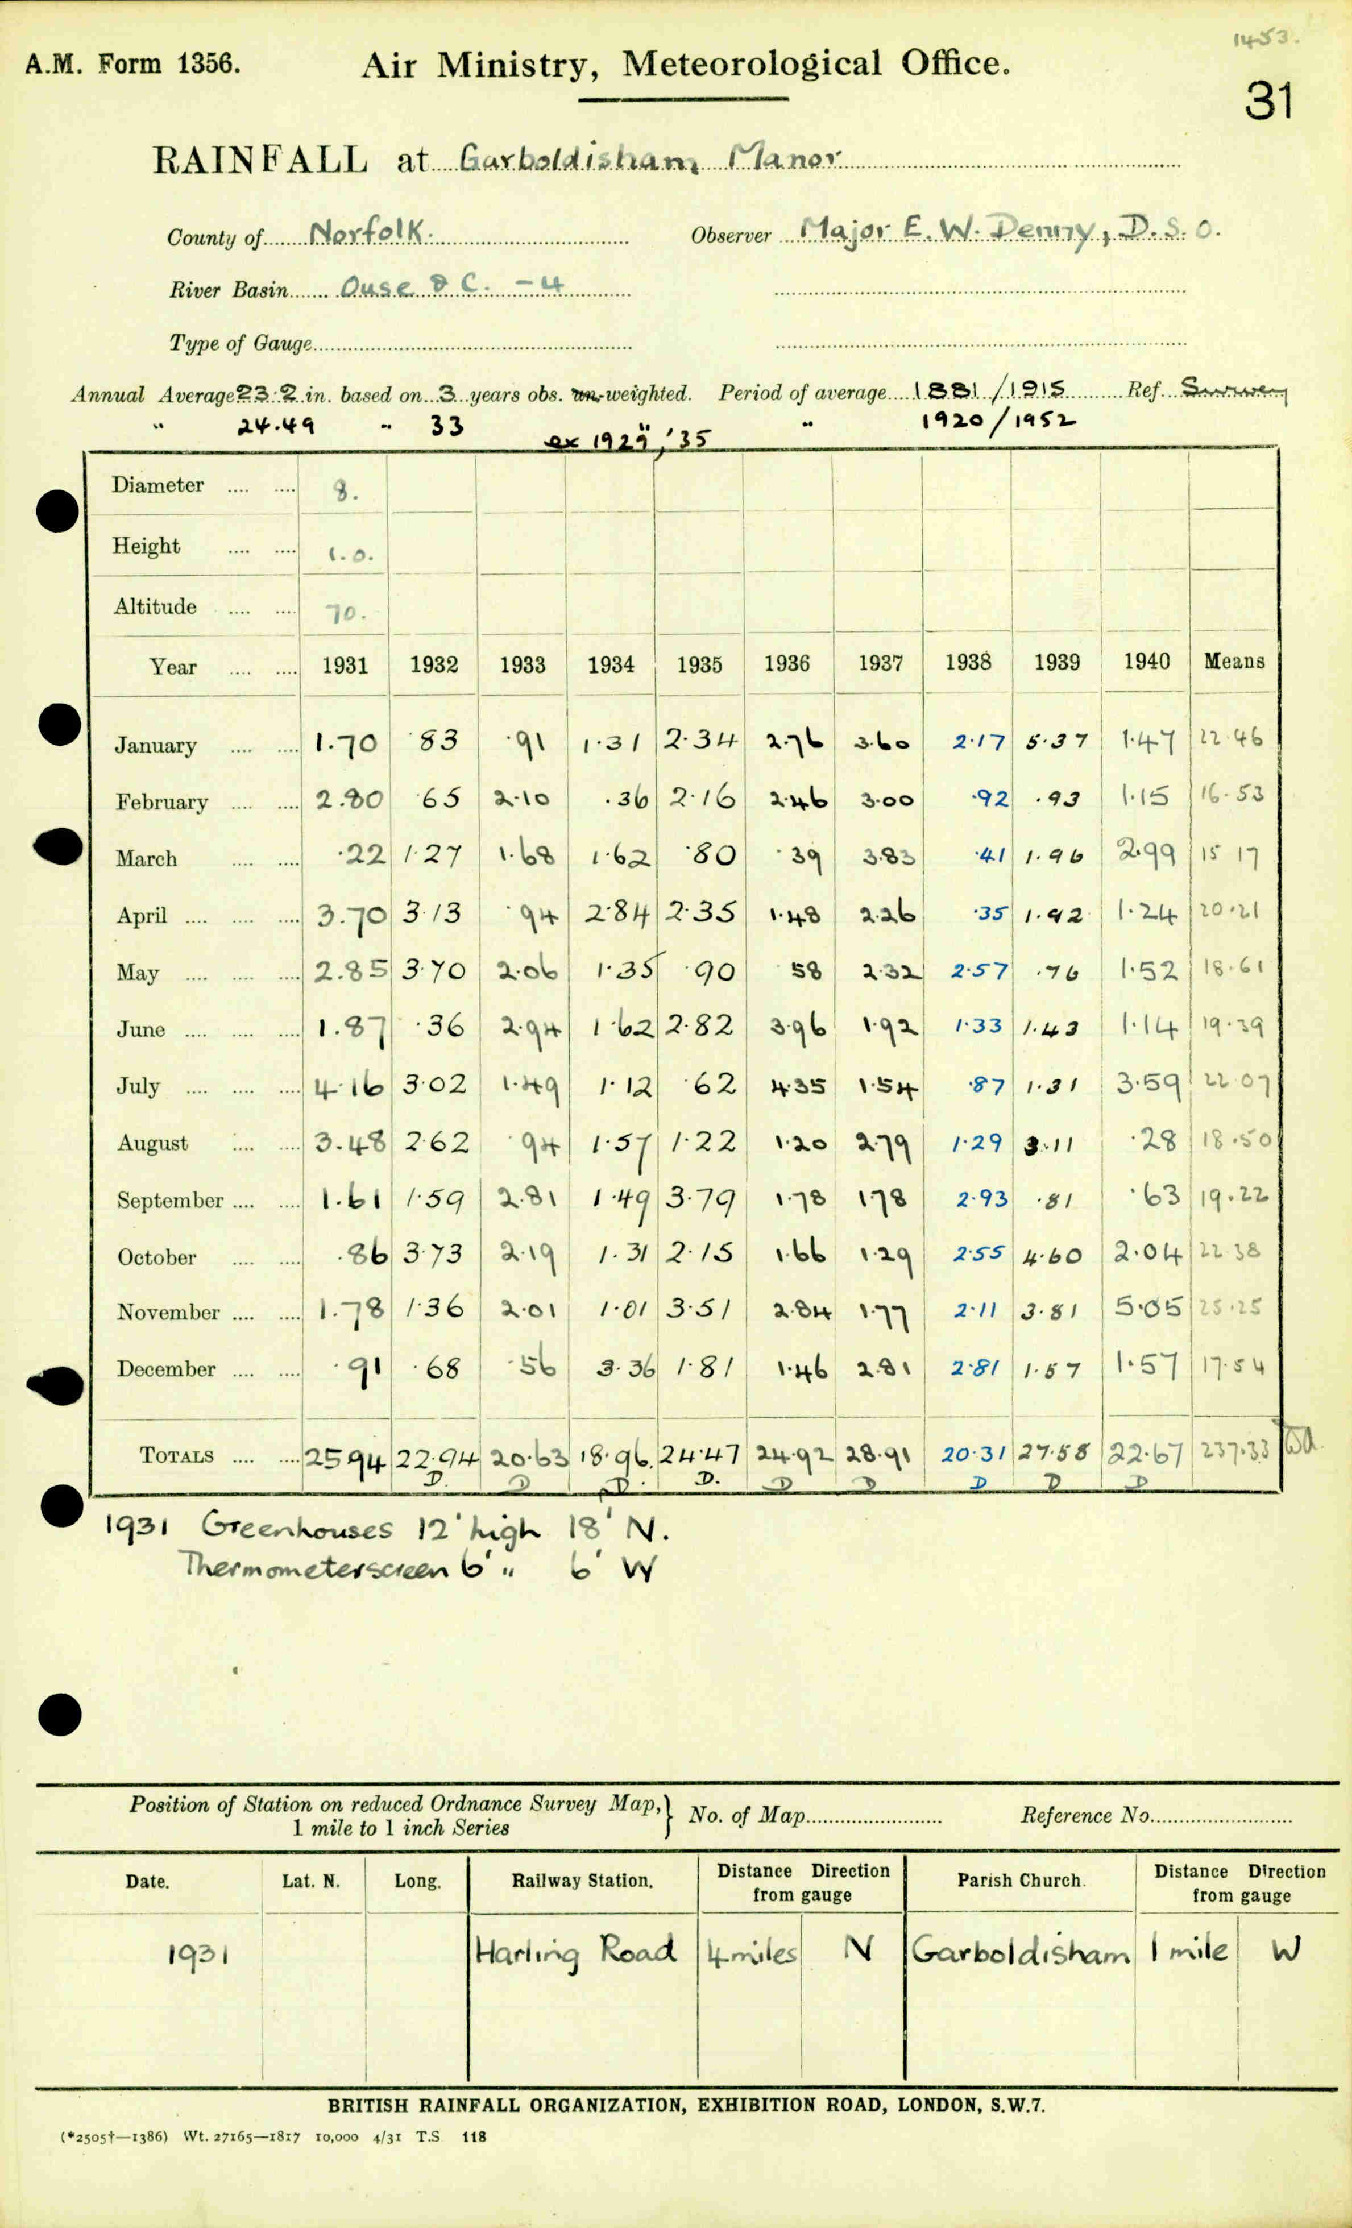 1453.
A.M. Form 1356. Air Ministry, Meteorological Office.
31
RAINFALL at Garboldisham, Manor
County of Norfolk. Observer Major E. W. Denny, D.S.O.
River Basin Ouse & C. -4
Type of Gauge
Annual Average 23.2 in. based on 3 years obs. un-weighted. Period of average 1881/1915 Ref. Survey
" 24.49 " 33 " 1920/1952
ex 1929, '35
Diameter .... .... 8.
Height .... .... 1.0.
Altitude .... .... 70.
Year .... .... 1931 1932 1933 1934 1935 1936 1937 1938 1939 1940 Means
January .... .... 1.70 .83 .91 1.31 2.34 2.76 3.60 2.17 5.37 1.47 22.46
February .... .... 2.80 .65 2.10 .36 2.16 2.46 3.00 .92 .93 1.15 16.53
March .... .... .22 1.27 1.68 1.62 .80 .39 3.83 .41 1.96 2.99 15 17
April .... .... .... 3.70 3.13 .94 2.84 2.35 1.48 2.26 .35 1.92 1.24 20.21
May .... .... .... 2.85 3.70 2.06 1.35 .90 58 2.32 2.57 .76 1.52 18.61
June .... .... .... 1.87 .36 2.94 1.62 2.82 3.96 1.92 1.33 1.43 1.14 19.39
July .... .... .... 4.16 3.02 1.49 1.12 .62 4.35 1.54 .87 1.31 3.59 22 07
August .... .... 3.48 2.62 .94 1.57 1.22 1.20 2.79 1.29 3.11 .28 18.50
September .... .... 1.61 1.59 2.81 1.49 3.79 1.78 1.78 2.93 .81 .63 19.22
October .... .... .86 3.73 2.19 1.31 2.15 1.66 1.29 2.55 4.60 2.04 22.38
November .... .... 1.78 1.36 2.01 1.01 3.51 2.84 1.77 2.11 3.81 5.05 25.25
December .... .... .91 .68 .56 3.36 1.81 1.46 2.81 2.81 1.57 1.57 17.54
TOTALS .... .... 25.94 22.94 20.63 18.96. 24.47 24.92 28.91 20.31 27.58 22.67 237.33
D. D D. D. D D D D D
1931 Greenhouses 12' high 18' N.
Thermometer screen 6' " 6' W
Position of Station on reduced Ordnance Survey Map,} No. of Map Reference No.
1 mile to 1 inch Series
Date. Lat. N. Long. Railway Station. Distance Direction from gauge Parish Church. Distance Direction from gauge
1931 Harling Road 4 miles N Garboldisham 1 mile W
BRITISH RAINFALL ORGANIZATION, EXHIBITION ROAD, LONDON, S.W.7.
(*2505†—1386) Wt. 27165—1817 10,000 4/31 T.S. 118